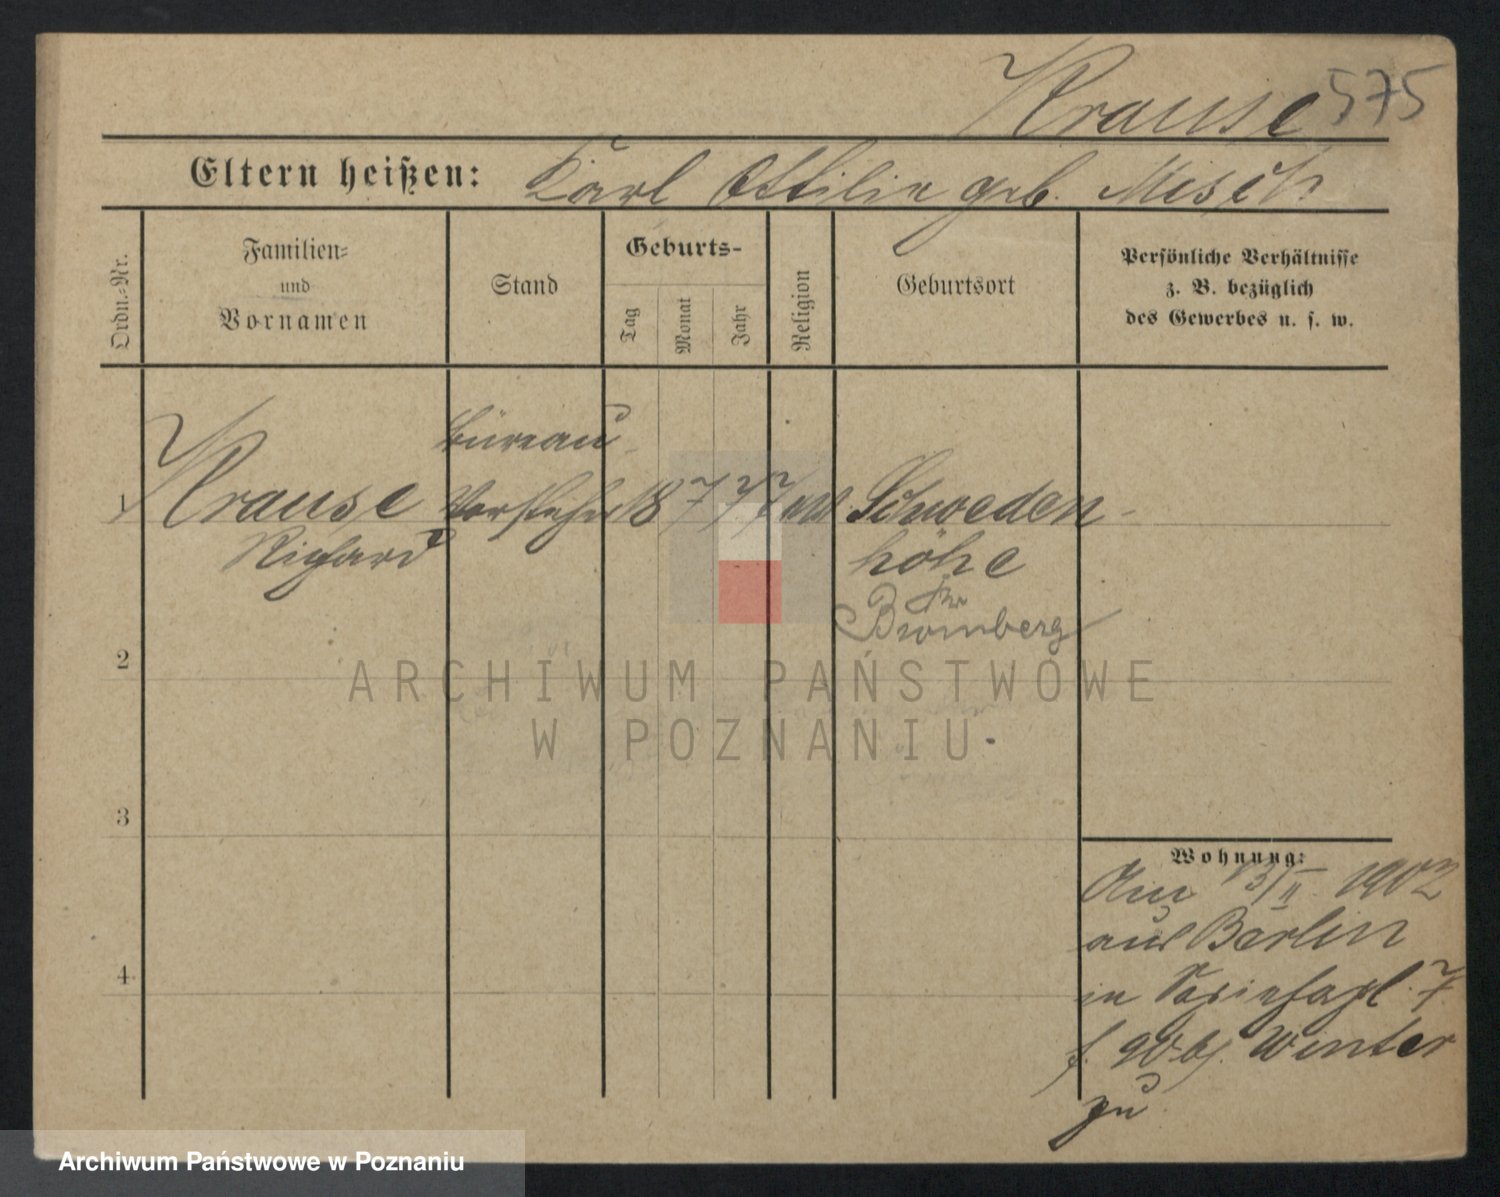 Krause 575
Eltern heißen: Karl Ottilie geb. Misch
Ordn.-Nr.
Familien-
und
Vornamen
Stand
Geburts-
Tag
Monat
Jahr
Religion
Geburtsort
Persönliche Verhältnisse
z. B. bezüglich
des Gewerbes u. s. w.
Büreau-
1 Krause Vorsteher 18 7 77 Schweden-
Richard höhe
Bromberg
2
ARCHIWUM PAŃSTWOWE
W POZNANIU
3
Wohnung:
Am 13/II 1902
aus Berlin
4
in 7
Winter
zu
Archiwum Państwowe w Poznaniu